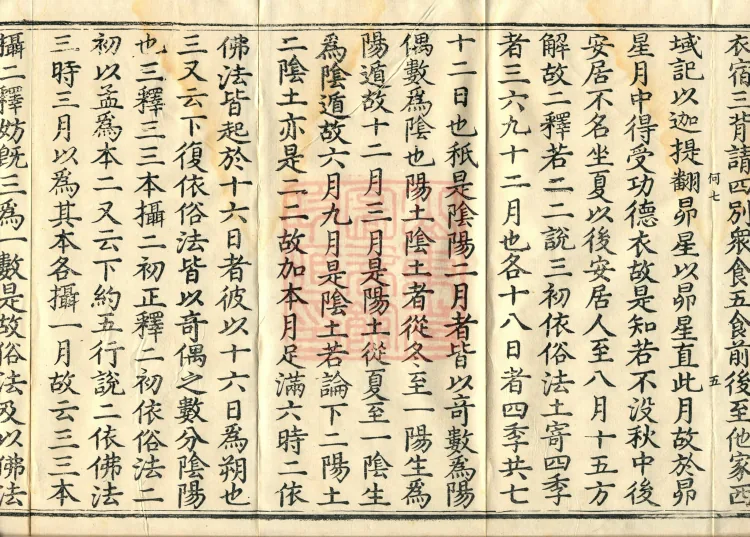 衣宿三背請四別衆食五食前後至他家西
何七
五
域記以迦提翻昴星以昴星直此月故於昴
星月中得受功德衣故是知若不没秋中後
安居不名坐夏以後安居人至八月十五方
解故二釋若二二說三初依俗法土寄四季
者三六九十二月也各十八日者四季共七
十二日也秖是陰陽二月者皆以竒數為陽
偶數為陰也陽土陰土者從冬至一陽生為
陽遁故十二月三月是陽土從夏至一陰生
為陰遁故六月九月是陰土若論下二陽土
二陰土亦是二二故加本月足滿六時二依
佛法皆起於十六日者彼以十六日為朔也
三又云下復依俗法皆以竒偶之數分陰陽
也三釋三三本攝二初正釋二初依俗法二
初以孟為本二又云下約五行說二依佛法
三時三月以為其本各攝一月故云三三本
攝二釋妨旣三為一數是故俗法及以佛法